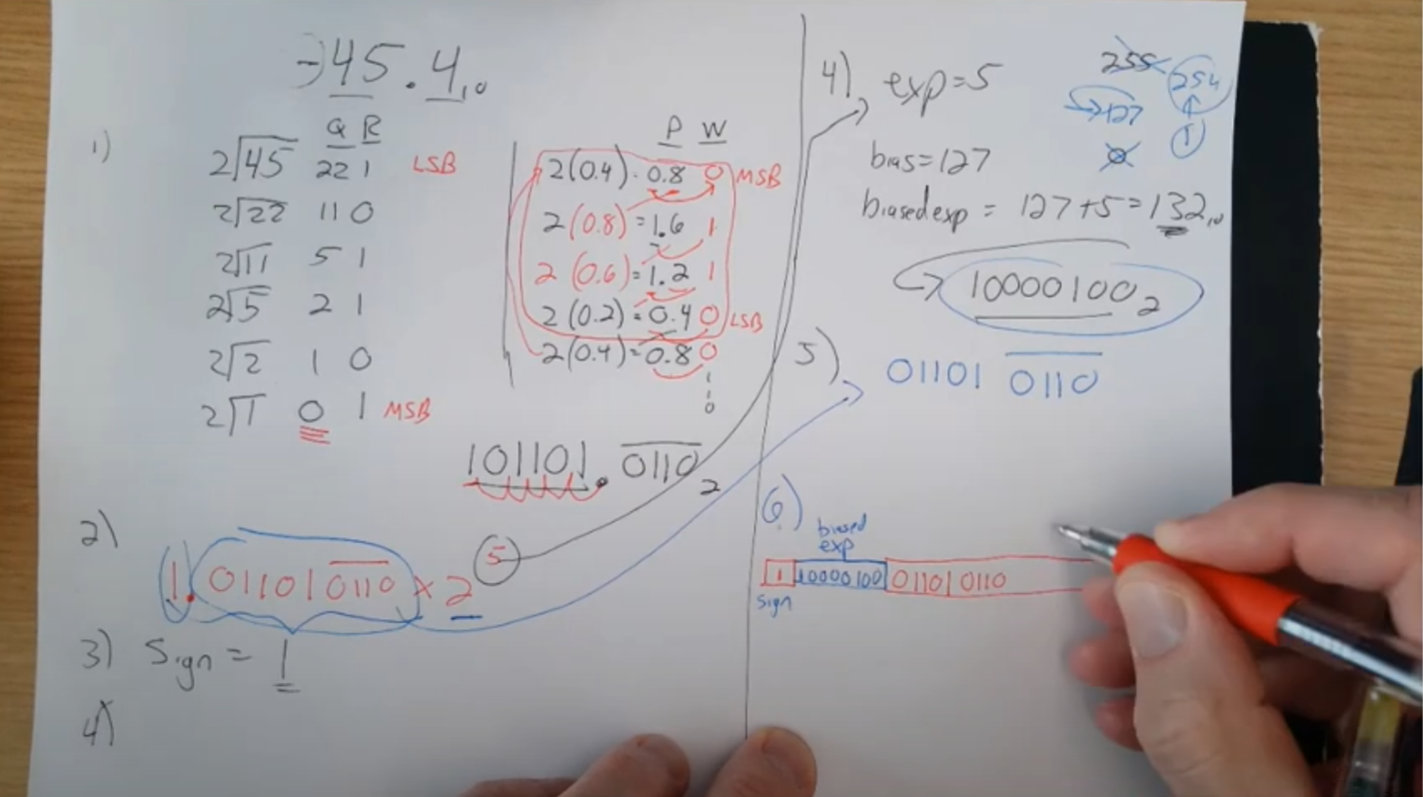 -45.4₁₀
1)
Q R
2√45 22 1 LSB
2√22 11 0
2√11 5 1
2√5 2 1
2√2 1 0
2√1 0 1 MSB
P W
2(0.4)=0.8 0 MSB
2(0.8)=1.6 1
2(0.6)=1.2 1
2(0.2)=0.4 0 LSB
2(0.4)=0.8 0
101101.0110₂
2)
1.011010110×2⁵
3) Sign = 1
4)
4) exp=5
bias=127
biased exp = 127+5=132₁₀
10000100₂
255 254
127
0 1
5)
01101 0110
6)
biased
exp
1 10000100 01101 0110
sign